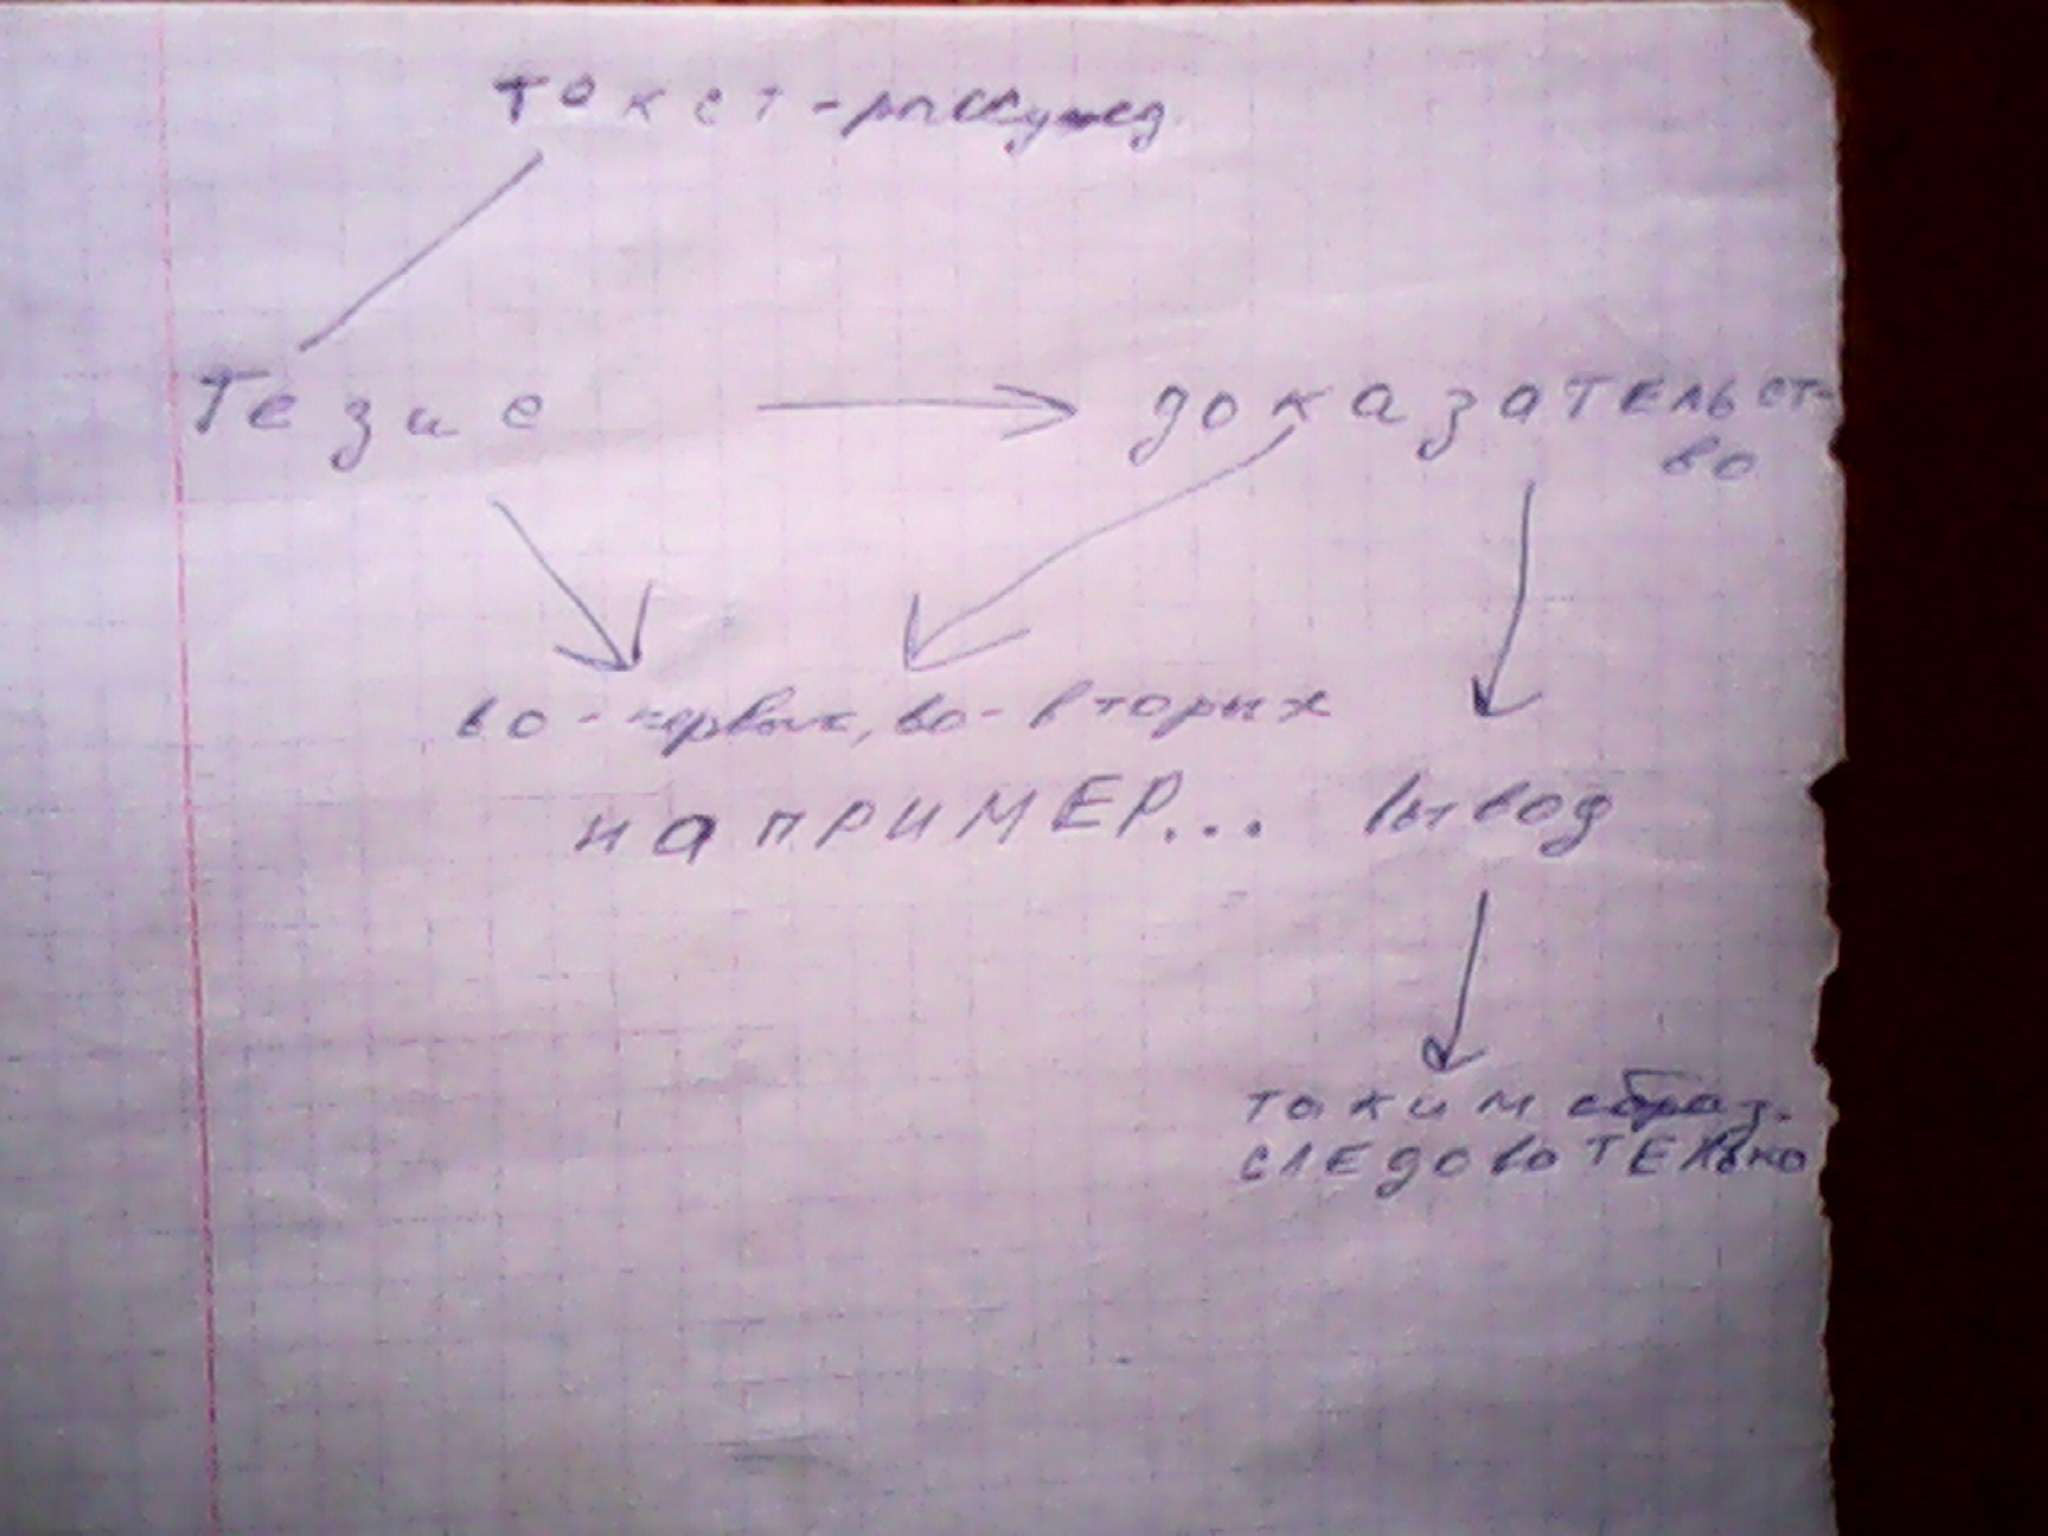 текст-рассужд.
Тезис доказательст-
во
во-первых, во-вторых
наПРИМЕР... вывод
таким образ.
следовательно